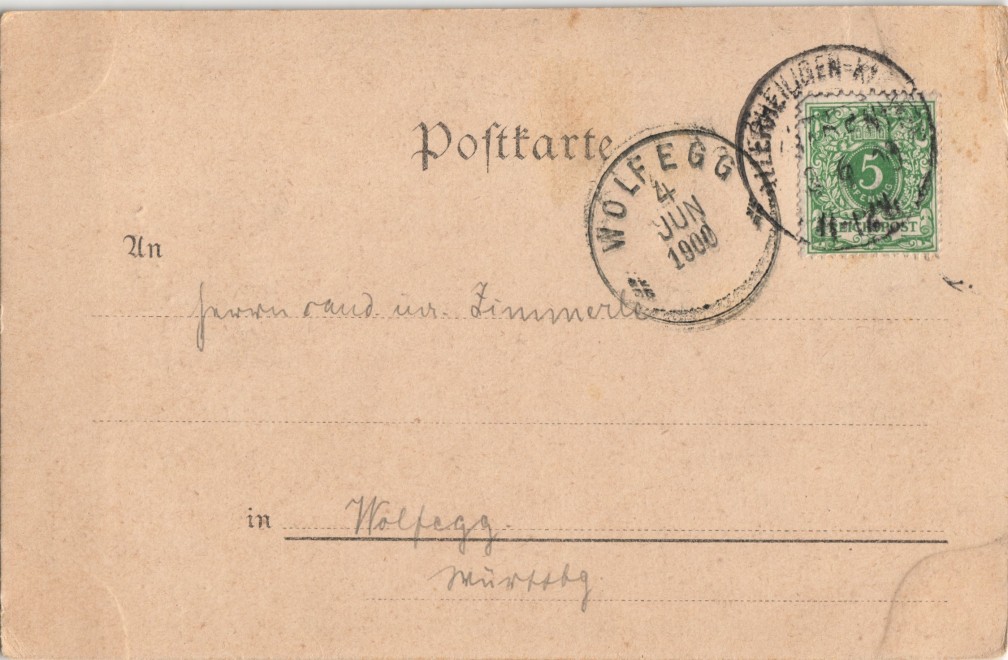 Postkarte
WOLFEGG
4
JUN
1900
ALLERHEILIGEN
5
REICHSPOST
An
Herrn cand. iur. Zimmerle
in Wolfegg.
Württbg.